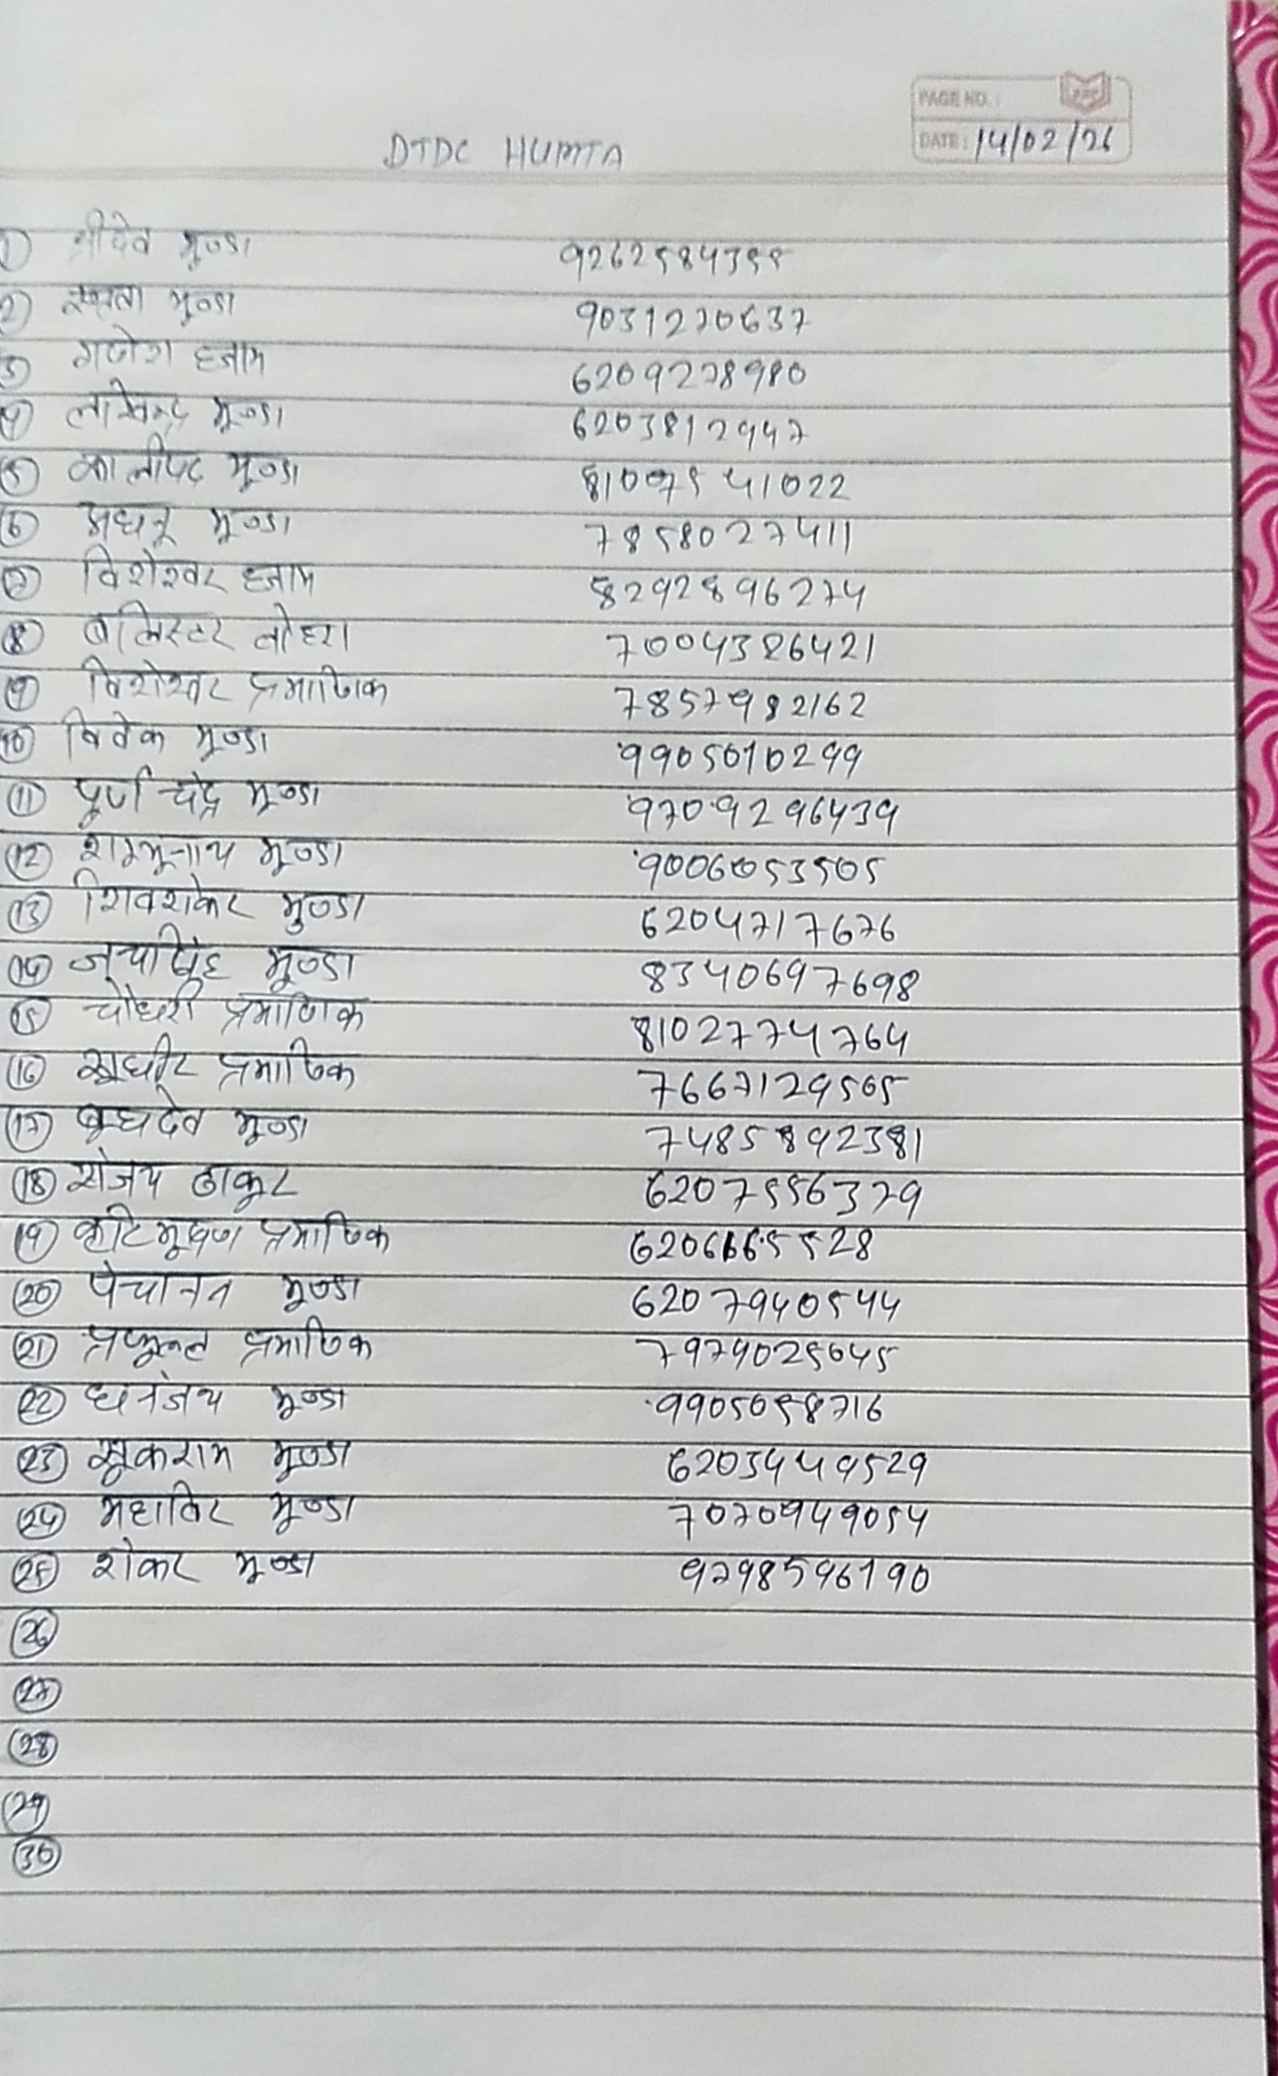 PAGE NO.:
DATE: 14/02/26
DTDC HUMTA
① श्रीदेव मुण्डा 9262584358
② मुण्डा 9031270637
③ गणेश हजाम 6209278980
④ मूण्डा 6203812947
⑤ कालीपद मूण्डा 8100541022
⑥ मूण्डा 7858027411
⑦ विशेश्वर हजाम 8292896274
⑧ बलिस्टर लोहरा 7004386421
⑨ विशेश्वर प्रमाणिक 7857982162
⑩ विवेक मूण्डा 9905010299
⑪ पूर्ण चंद्र मूण्डा 9709296439
⑫ शम्भूनाथ मूण्डा 9006053505
⑬ शिवशंकर मुण्डा 6204717676
⑭ जयसिंह मूण्डा 8340697698
⑮ चौधरी प्रमाणिक 8102774764
⑯ सूधीर प्रमाणिक 7667129505
⑰ बूधदेव मूण्डा 7485892381
⑱ संजय ठाकुर 6207556379
⑲ प्रमाणिक 6206665528
⑳ पंचानन मूण्डा 6207940544
㉑ प्रफूल्ल प्रमाणिक 7979025645
㉒ धनंजय मूण्डा 9905058716
㉓ सूकराम मूण्डा 6203449529
㉔ महाविर मूण्डा 7070949054
㉕ शंकर मूण्डा 9798596190
㉖
㉗
㉘
㉙
㉚